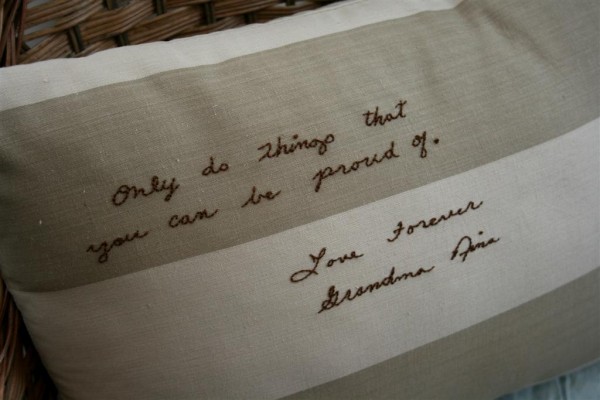 Only do things that
you can be proud of.
Love Forever
Grandma Nina